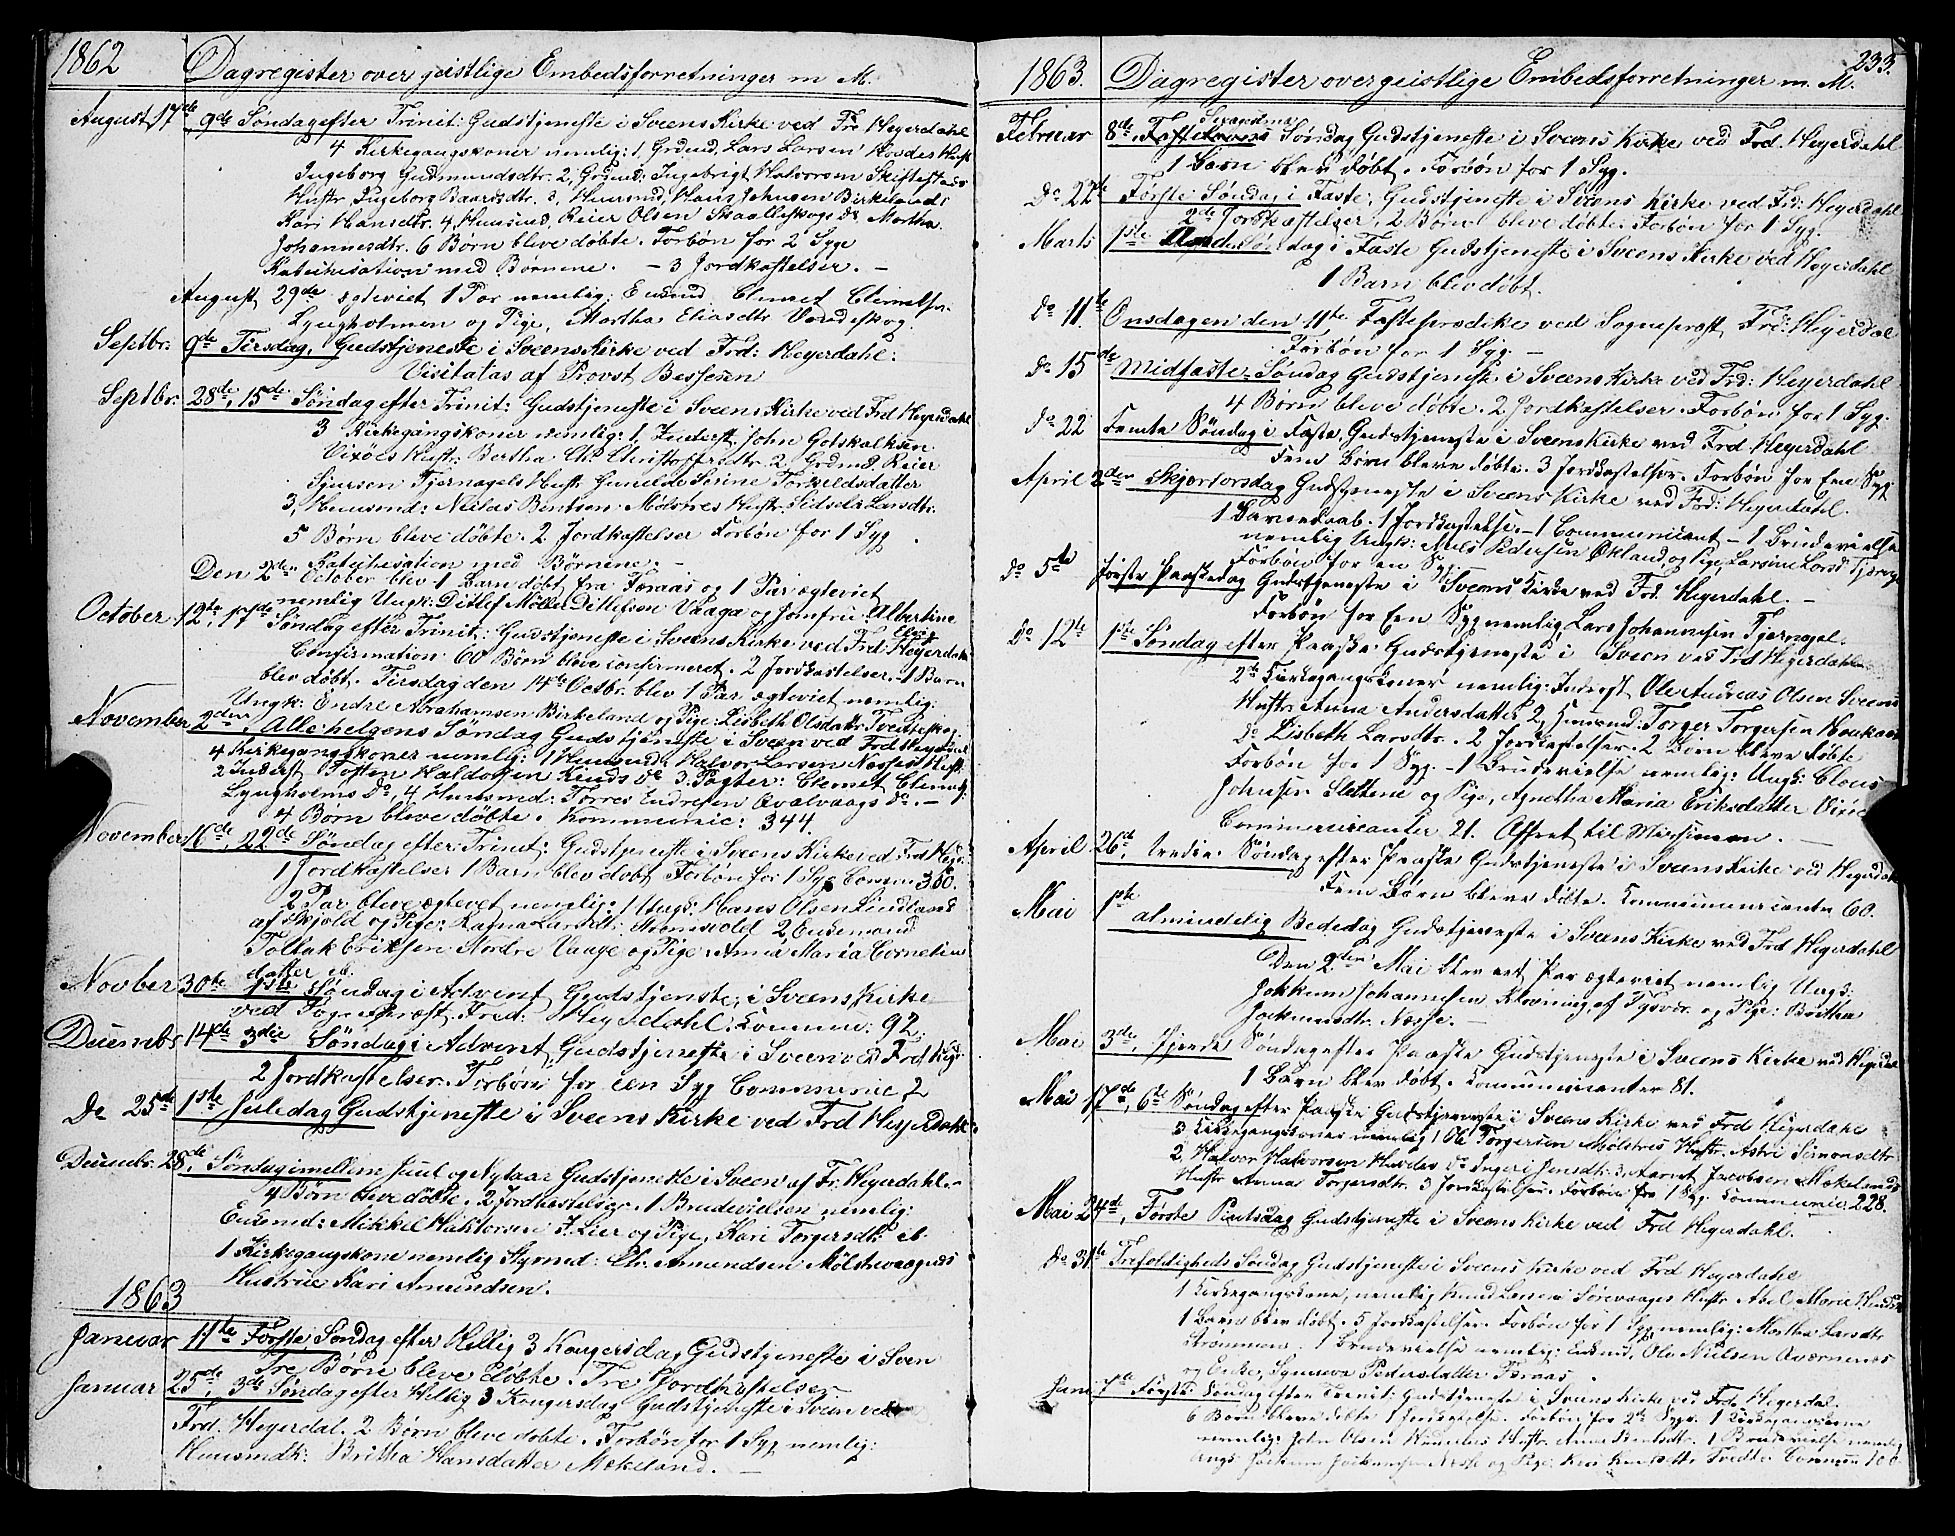 1862 Dagregister over geistlige Embedsforretninger m M.
August 17de 9de Søndag efter Trinit: Gudstjeneste i Sveens Kirke ved Fr Heyerdahl
4 Kirkegangskoner nemlig: 1, Grdmd. Lars Larsen Hovdes Hust
Ingeborg Gudmundsdtr. 2, Grdmd: Ingebrigt Halvorsen Skiftestads
Hustr Ingeborg Baardsdtr. 3, Huusmd, Hans Johnsen Birkelands
Kari Hansdtr. 4, Huusmd, Reier Olsen Skaalleskogs do Martha
Johannesdtr. 6 Børn bleve døbte. Forbøn for 2 Syge
Katechisation med Børnene. – 3 Jordkastelser. –
August 29de egteviet 1 Par nemlig: Enkmd Clemet Clemetsen
Lyngholmen og Pige, Martha Eliasdtr Vandeskog.
Septbr. 9de Tirsdag, Gudstjeneste i Sveens Kirke ved Frd: Heyerdahl:
Visitatas af Provst Bessesen
Septbr. 28de, 15de Søndag efter Trinit: Gudstjeneste i Sveens Kirke ved Frd Heyerdahl
3 Kirkegangskoner nemlig: 1, Inderst John Gotskalksen
Vixøes Hustr: Bertha Chr. Christoffersdtr. 2, Grdmd. Reier
Sjursen Tjernagels Hustr Gunelde Serine Torkeldsdatter
3, Huusmd: Niclas Bentsen Mølstres Hustr. Sidsela Larsdtr.
5 Børn bleve døbte. 2 Jordkastelser Forbøn for 1 Syg
Katechisation med Børnene. –
Den 2den October blev 1 Barn døbt fra Foraas og 1 Par egteviet
nemlig Ungk: Ditlef Möller Ditlefsen Vaaga og Jomfru: Albertine
October 12te, 17de Søndag efter Trinit: Gudstjeneste i Sveens Kirke ved Frd Heyerdahl
Confirmation 60 Børn bleve confirmeret. 2 Jordkastelser. 1 Barn
blev døbt. Tirsdag den 14de Octbr. blev 1 Par egteviet nemlig:
Ungk: Endre Abrahamsen Birkeland og Pige: Lisbeth Olsdatter
November 2den, Allehelgens Søndag Gudstjeneste i Sveen ved Frd Heyerdahl
4 Kirkegangskoner nemlig: 1 Huusmd: Halvor Larsen Hust:
2 Inderst Tosten Haldorsen Rinds do 3. Pagter: Clemet Clemets:
Lyngholms do, 4 Huusmd: Torres Endresen Qvalvaags do. –
4 Børn bleve døbte. Kommunic: 344.
November 16de, 22de Søndag efter Trinit: Gudstjeneste i Sveens Kirke ved Frd Heyr:
1 Jordkastelser 1 Barn blev døbt Forbøn for 1 Syg Commun 360.
2 Par bleve egteviet nemlig: 1 Ungk. Hans Olsen Lindland
af Skjold og Pige: 2 Enkemand
Tollak Eriksen Nordre Vaage og Pige Anna Maria Cornelius
datter ib.
Novber 30te 1ste Søndag i Advent Gudstjeneste i Sveens Kirke
ved Sogneprest Fred: Heyerdahl. Commun: 92
Decembr 14de 3die Søndag i Advent Gudstjeneste i Sveen ved Frd Heyr
2 Jordkastelser. Forbøn for een Syg Communic 2
Do 25de 1ste Juledag Gudstjeneste i Sveens Kirke ved Frd Heyerdahl.
Decembr. 28de, Søndag imellem Juul og Nytaar Gudstjeneste i Sveen af Fr. Heyerdahl. –
4 Børn bleve døbte. 2 Jordkastelser. 1 Brudevielsen nemlig:
Enkmd: Mikkel Haktorsen I. Lier og Pige, Kari Torgersdtr. ib.
1 Kirkegangskone nemlig Styrmd: Chr. Amundsen Mölstrevaagens
Hustrue Kari Amundsen.
1863
Januar 11te Første Søndag efter Hellig 3 Kongersdag Gudstjeneste i Sven
Tre Børn bleve döbte. Tre Jordkastelser
Januar 25de, 3de Søndag efter Hellig 3 Kongersdag Gudstjeneste i Sveen ved
Frd. Heyerdal. 2 Børn bleve døbte. Forbøn for 1 Syg nemlig:
Huusmdk: Britha Hansdatter Mokeland. –
233.
1863. Dagregister over geistlige Embedsforretninger m. M.
Februar 8de Sexagesima Søndag Gudstjeneste i Sveens Kirke ved Frd. Heyerdahl
1 Barn blev døbt. Forbøn for 1 Syg.
Do 22de Første Søndag i Faste, Gudstjeneste i Sveens Kirke ved Frd: Heyerdahl
2de Jordkastelser, 2 Børn bleve døbte. Forbøn for 1 Syg.
Marts 1ste Anden Søndag i Faste Gudstjeneste i Sveens Kirke ved Heyerdahl
1 Barn blev døbt.
Do 11te Onsdagen den 11te Fasteprædike ved Sogneprest Frd: Heyerdal
Forbøn for 1 Syg. –
Do 15de Midfaste-Søndag Gudstjeneste i Sveens Kirke ved Frd: Heyerdahl
4 Børn bleve døbte. 2 Jordkastelser. Forbøn for 1 Syg.
Do 22 Femte Søndag i Faste, Gudstjeneste i Sveens Kirke ved Frd Heyerdahl
Fem Børn bleve døbte. 3 Jordkastelser. Forbøn for Een Syg
April 2den Skjærtorsdag Gudstjeneste i Sveens Kirke ved Frd: Heyerdahl.
1 Barnedaab. 1 Jordkastelse. – 1 Communicent – 1 Brudevielse
nemlig Ungk: Niels Pedersen Økland, og Pige, Larsine Larsd: Tjernagel
Forbøn for en Syg
Do 5te Første Paaskedag Gudstjeneste i Sveens Kirke ved Frd. Heyerdahl. –
Forbøn for Een Syg nemlig, Lars Johannesen Tjernagel.
Do 12te 1ste Søndag efter Paaske Gudstjeneste i Sveen ved Frd Heyerdahl
2de Kirkegangskoner nemlig: Inderst Ole Andreas Olsen Sveens
Hustr Anna Andersdatter 2, Huusmd: Torger Torgersen Haukaas
do Lisbeth Larsdtr. 2 Jordkastelser. 2 Børn bleve døbte
Forbøn for 1 Syg. – 1 Brudevielse nemlig: Ungk: Claus
Johnsen Slettene og Pige, Agnetha Maria Eriksdatter Vixøe
Communicanter 21. Offret til Missionen. –
April 26de, tredie Søndag efter Paaske Gudstjeneste i Sveens Kirke ved Heyerdahl
Fem Børn bleve døbte. Communicanter 60.
Mai 1ste almindelig Bededag Gudstjeneste i Sveens Kirke ved Frd Heyerdahl
Den 2den Mai blev et Par egteviet nemlig Ungk:
Jokkum Johannesen af Tysvær og Pige: Britha
Jockumsdtr. Næsse. –
Mai 3de, fjerde Søndag efter Paaske Gudstjeneste i Sveens Kirke ved Heyerdal
1 Barn blev døbt. Communicanter 81.
Mai 17de, 6te Søndag efter Paaske Gudstjeneste i Sveens Kirke ved Frd Heyerdahl
3 Kirkegangskoner nemlig 1 Ole Torgersen Mölstres Hustr. Astri Simonsdtr
2, Halvor Halvorsen Hovdes do Inger Jensdtr. 3, Aarret Jacobsen Mokelands
Hustr Anna Torgersdtr. 3 Jordkastelser. Forbøn for 1 Syg. Communic. 228.
Mai 24de, Første Pintsdag Gudstjeneste i Sveens Kirke ved Frd Heyerdahl.
Do 31te Trefoldigheds Søndag Gudstjeneste i Sveens Kirke ved Frd Heyerdahl
1 Kirkegangskone, nemlig Knud Larsen Sørevaages Hustr Abel Marie
1 Barn blev døbt. 5 Jordkastelser. Forbøn for 1 Syg nemlig: Martha Larsdtr
Strømmen. 1 Brudevielse nemlig: Enkmd, Ole Nielsen Qværnenæs
og Enke, Synneva Pedersdatter Foraas.
Juni 7de Første Søndag efter Trinit: Gudstjeneste i Sveens Kirke ved Frd. Heyerdal.
6 Børn bleve døbte 1 Jordkastelse. Forbøn for 2de Syge. 1 Kirkegangskone
nemlig: John Olsen Hustr. Anna 1 Brudevielse nemlig
Ungk Jockum Jockumsen Næsse og Pige Tvedte Commun 100